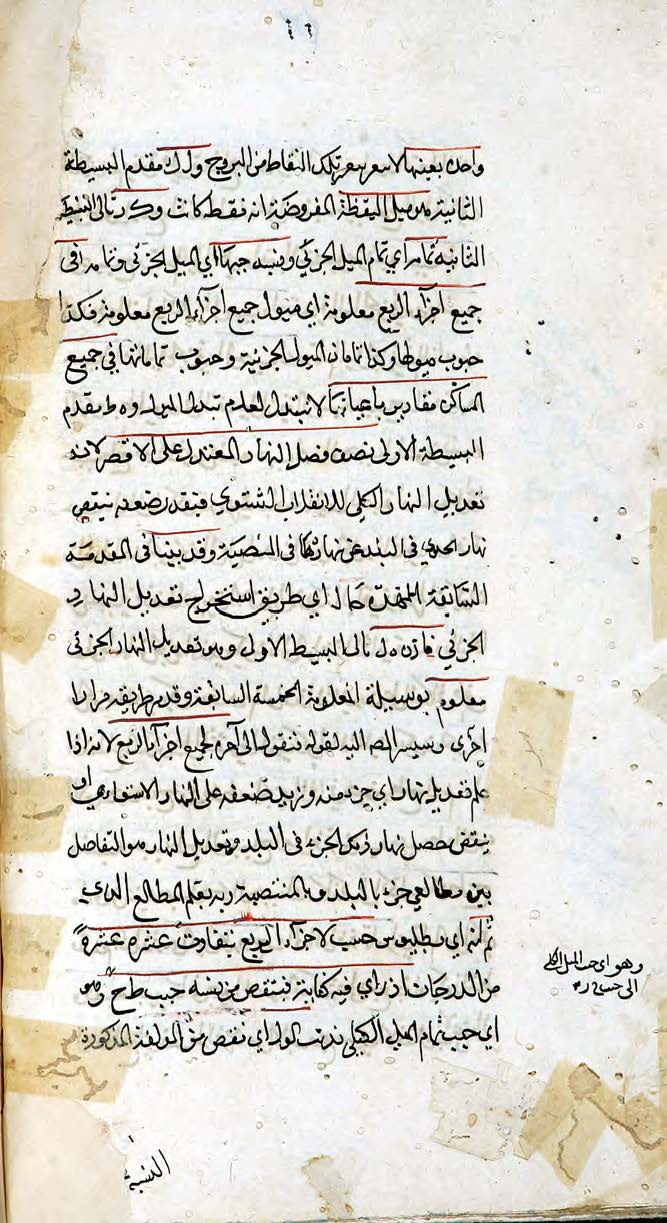 واحدة بعينها لا تتغير بتغير تلك النقاط من البروج و ك مقدم البسيطة
الثانية هو ميل النقطة المفروضة انه فقط كانت و ك ر تالى البسيطة
الثانيه تمامه اي تمام الميل الجزئي ونسبه جيبها اي الميل الجزئي وتمامه فى
جميع اجزاء الربع معلومة اي ميول جميع اجزاء الربع معلومة فكذا
جيوب ميولها وكذا تمامات الميول الجزئية وجيوب تماماتها في جميع
المساكن مقادير باعيانها لا تتبدل لعدم تبدل الميل و ه ط مقدم
البسيطة الاولى نصف فضل النهار المعتدل على الاقصر لانه
تعديل النهار الكلي للانقلاب الشتوي فبقدر ضعفه ينتقص
نهار الجدي في البلد عن نهارها فى المنتصبة وقد بينا فى المقدمة
السابقة الممهدة حال اي طريق استخراج تعديل النهار
الجزئي فاذن ه ل تالى البسيط الاول وهو تعديل النهار الجزئى
معلوم بوسيلة المعلومة الخمسة السابقة وقد مر طريقه مرارا
اخرى وسيشير المص اليه لقوله فنقول الى آخره لجميع اجزاء الربع لانه اذا
علم تعديل نهار اي جزء منه ونزيد ضعفه على النهار الاستوائي او
ينتقص حصل نهار ذلك الجزء فى البلد وتعديل النهار هو التفاضل
بين مطالعي جزء بالبلد وبالمنتصبة وبه يعلم المطالع البلدي
ثم انه اي بطليموس حسب لاجزاء الربع بتفاوت عشرة عشرة
من الدرجات اذ راي فيه كفاية فنتقص من نسبة جيب ط ح وهو
اي جيب تمام الميل الكلي ندنب الولد اي نقص من المولفة المذكورة
النسبة
وهو اي جيب الميل الكلي
الى جيب ر ه